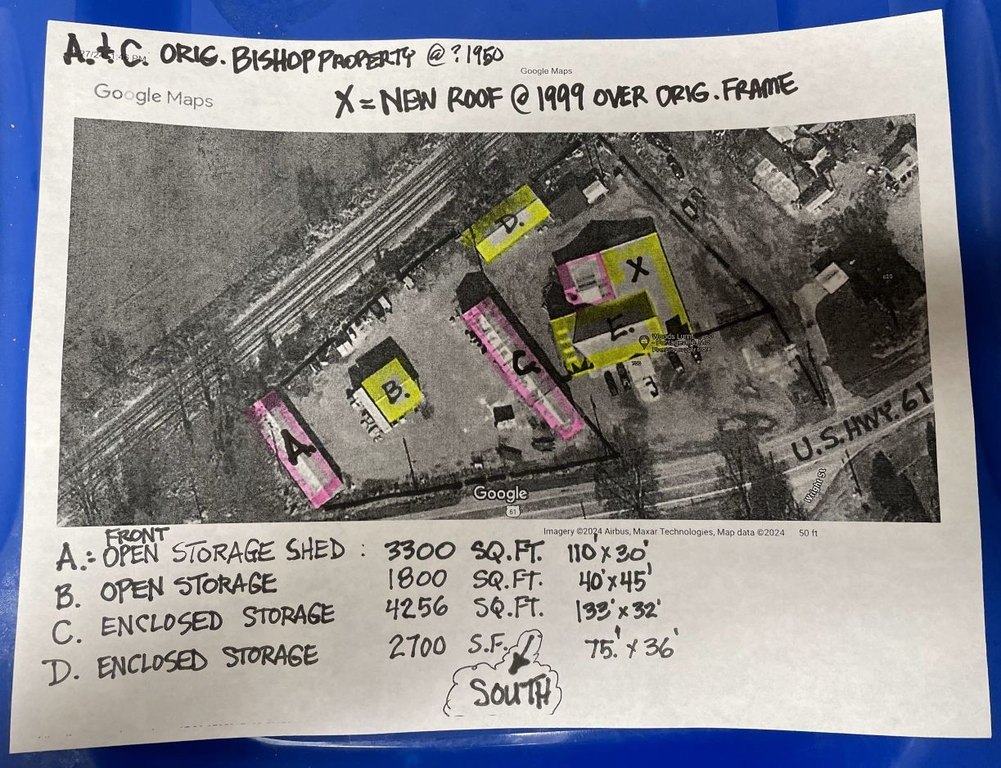 A. & C. ORIG. BISHOP PROPERTY @ ? 1950
Google Maps
Google Maps
X = NEW ROOF @ 1999 OVER ORIG. FRAME
D.
X
E.
C
B.
A.
U.S. HWY. 61
Wright St
Google
61
Imagery ©2024 Airbus, Maxar Technologies, Map data ©2024 50 ft
FRONT
A.: OPEN STORAGE SHED : 3300 SQ.FT. 110' X 30'
B. OPEN STORAGE 1800 SQ.FT. 40' X 45'
C. ENCLOSED STORAGE 4256 SQ.FT. 133' X 32'
D. ENCLOSED STORAGE 2700 S.F. 75.' X 36'
SOUTH